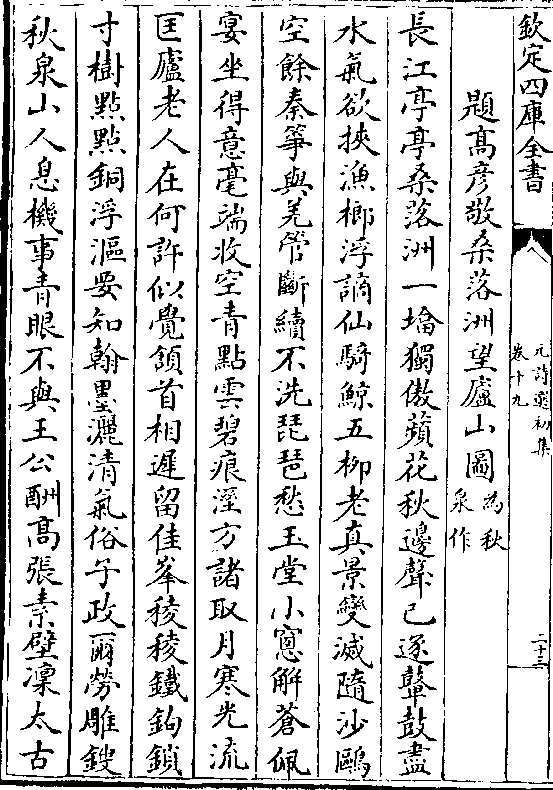 欽定四庫全書
元詩選初集
卷十九
二十三
題高彦敬桑落洲望廬山圖為秋泉作
長江亭亭桑落洲一㙮獨傲蘋花秋邊聲已逐鼙鼓盡
水氣欲挾漁榔浮謫仙騎鯨五柳老真景變滅隨沙鷗
空餘秦箏與羌管斷續不洗琵琶愁玉堂小窻解蒼佩
宴坐得意毫端收空青點雲碧痕溼方諸取月寒光流
匡廬老人在何許似覺頷首相遲留佳峯稜稜鐵鈎鎖
寸樹點點銅浮漚要知翰墨灑清氣俗子政爾勞雕鎪
秋泉山人息機事青眼不與王公酬高張素壁凜太古